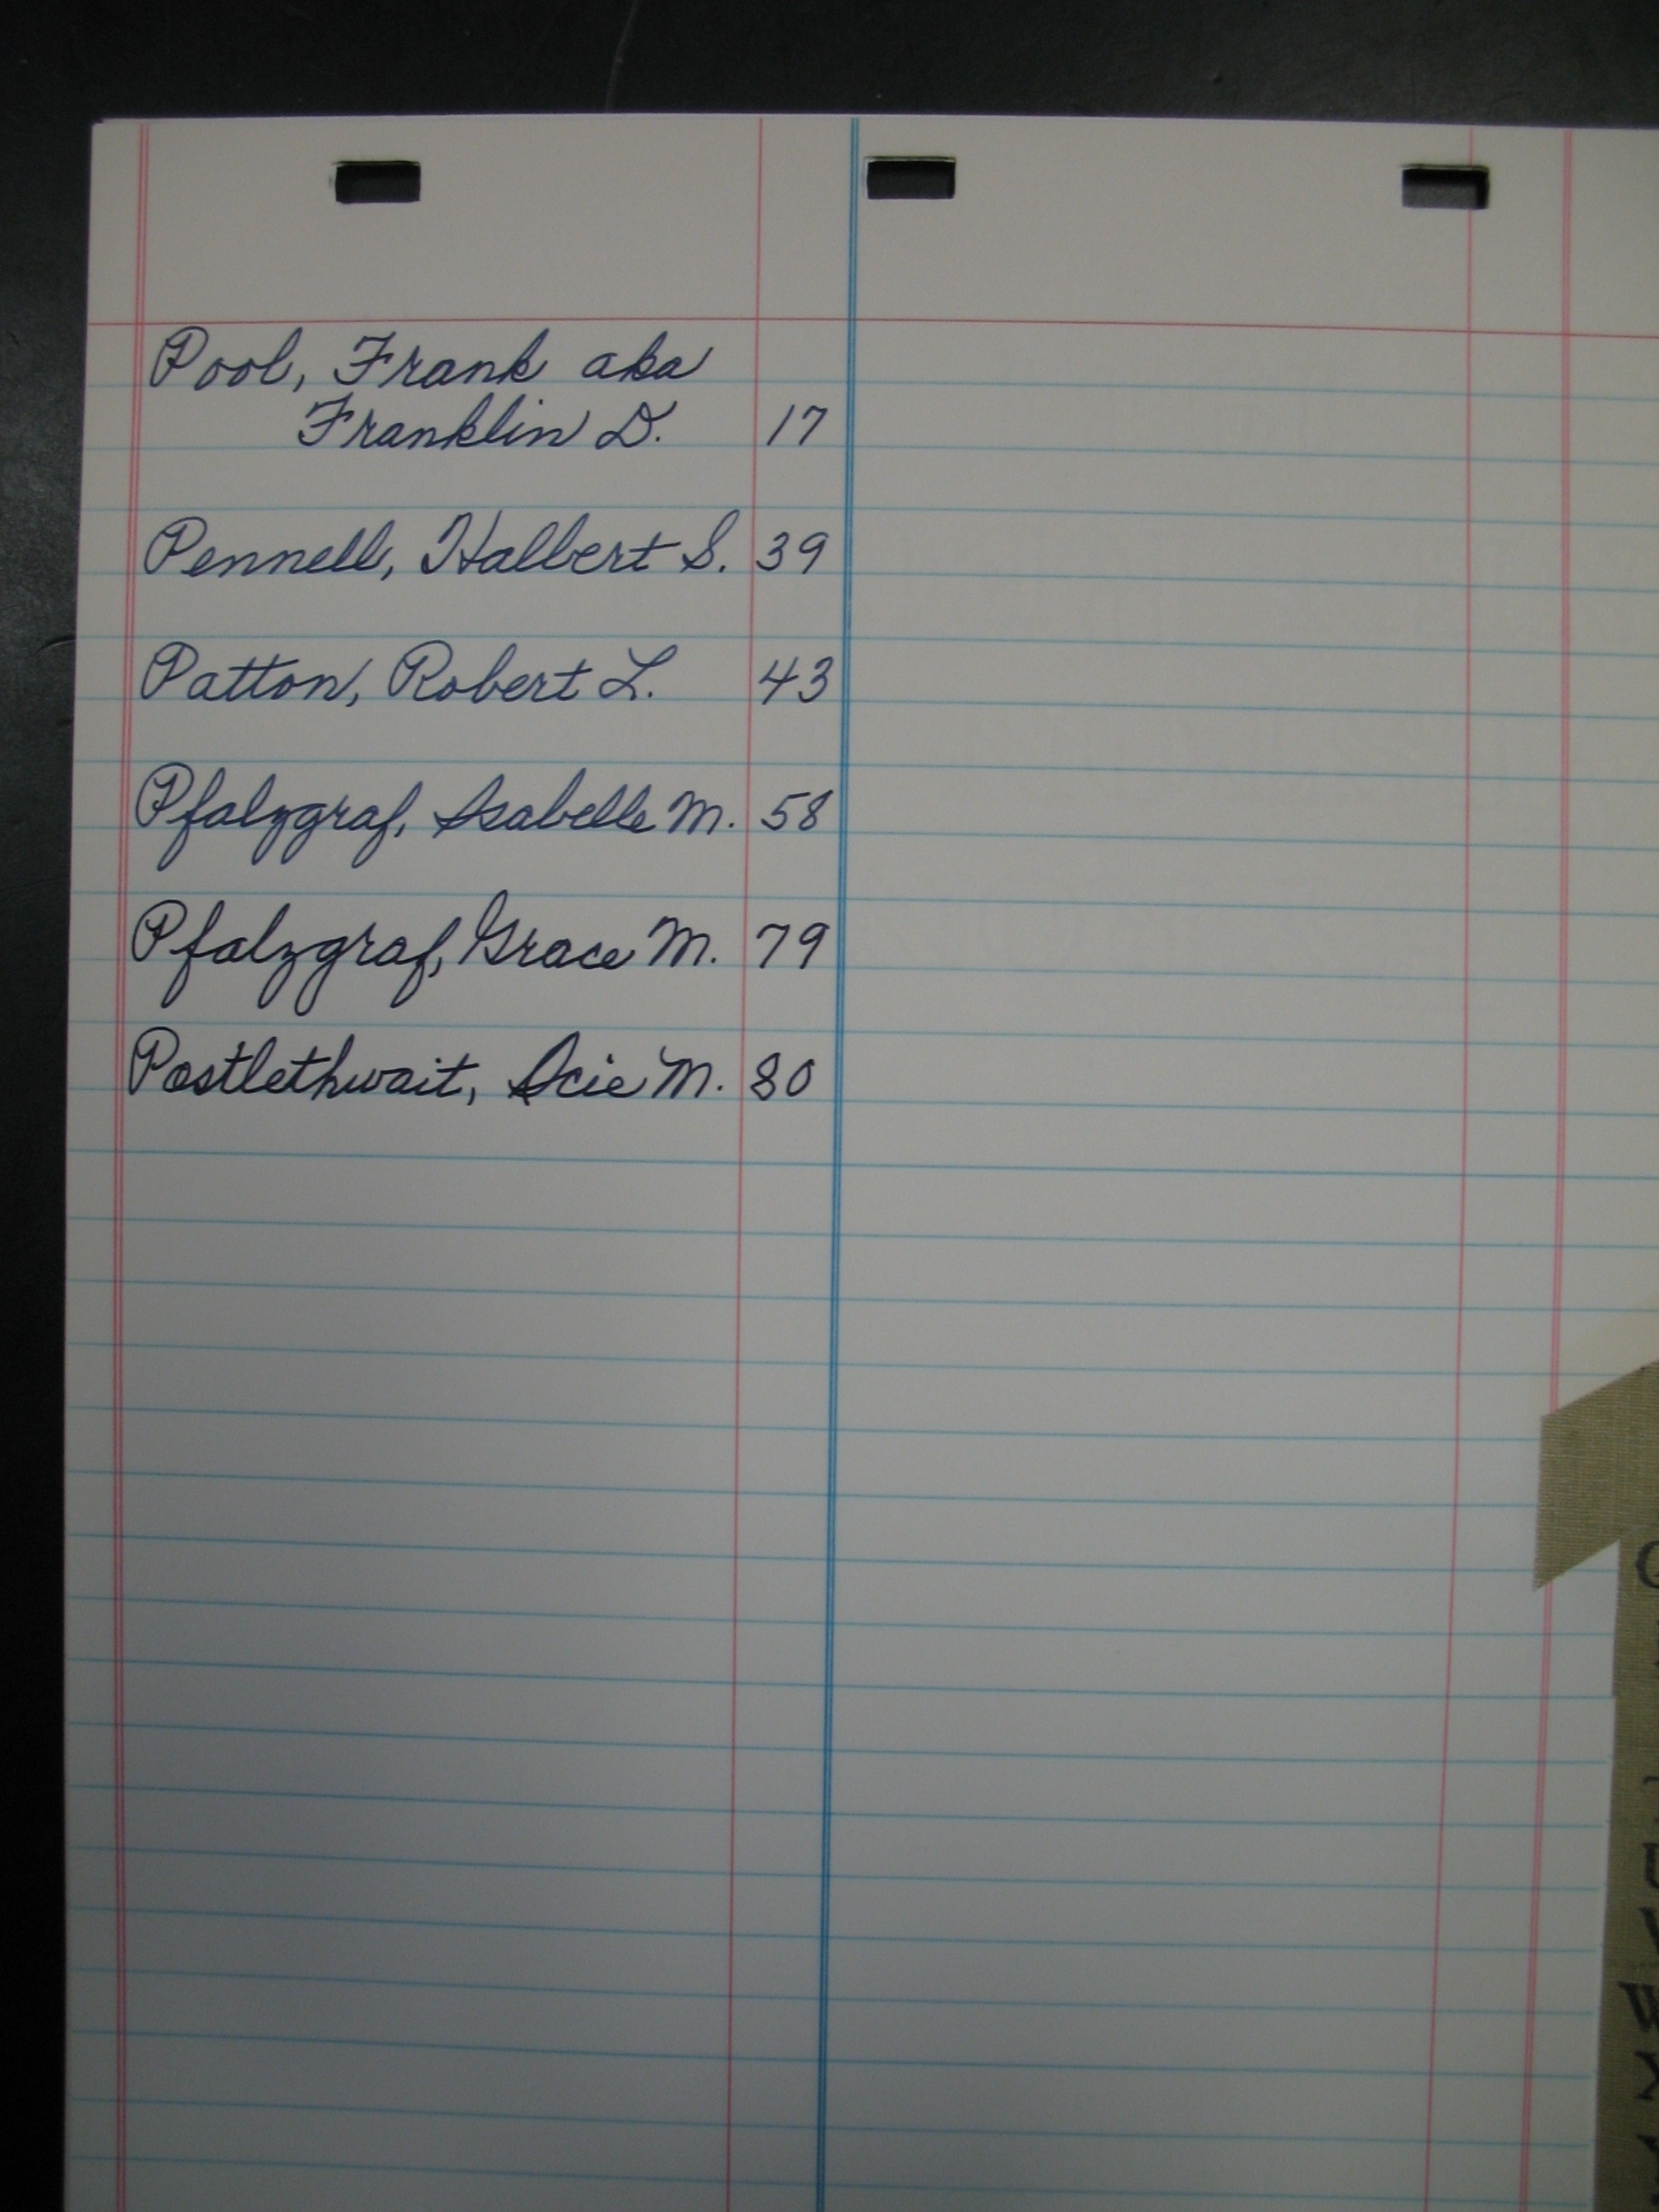 Pool, Frank aka
Franklin D. 17
Pennell, Halbert S. 39
Patton, Robert L. 43
Pfalzgraf, Isabelle M. 58
Pfalzgraf, Grace M. 79
Postlethwait, Icie M. 80
W